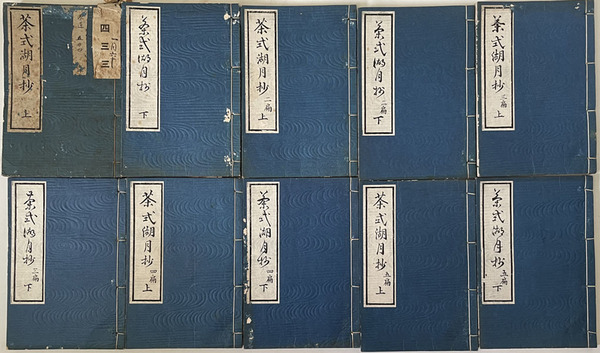 茶式湖月抄 上
四三三
茶式湖月抄 下
茶式湖月抄 二扁 上
茶式湖月抄 二扁 下
茶式湖月抄 三扁 上
茶式湖月抄 三扁 下
茶式湖月抄 四扁 上
茶式湖月抄 四扁 下
茶式湖月抄 五扁 上
茶式湖月抄 五扁 下